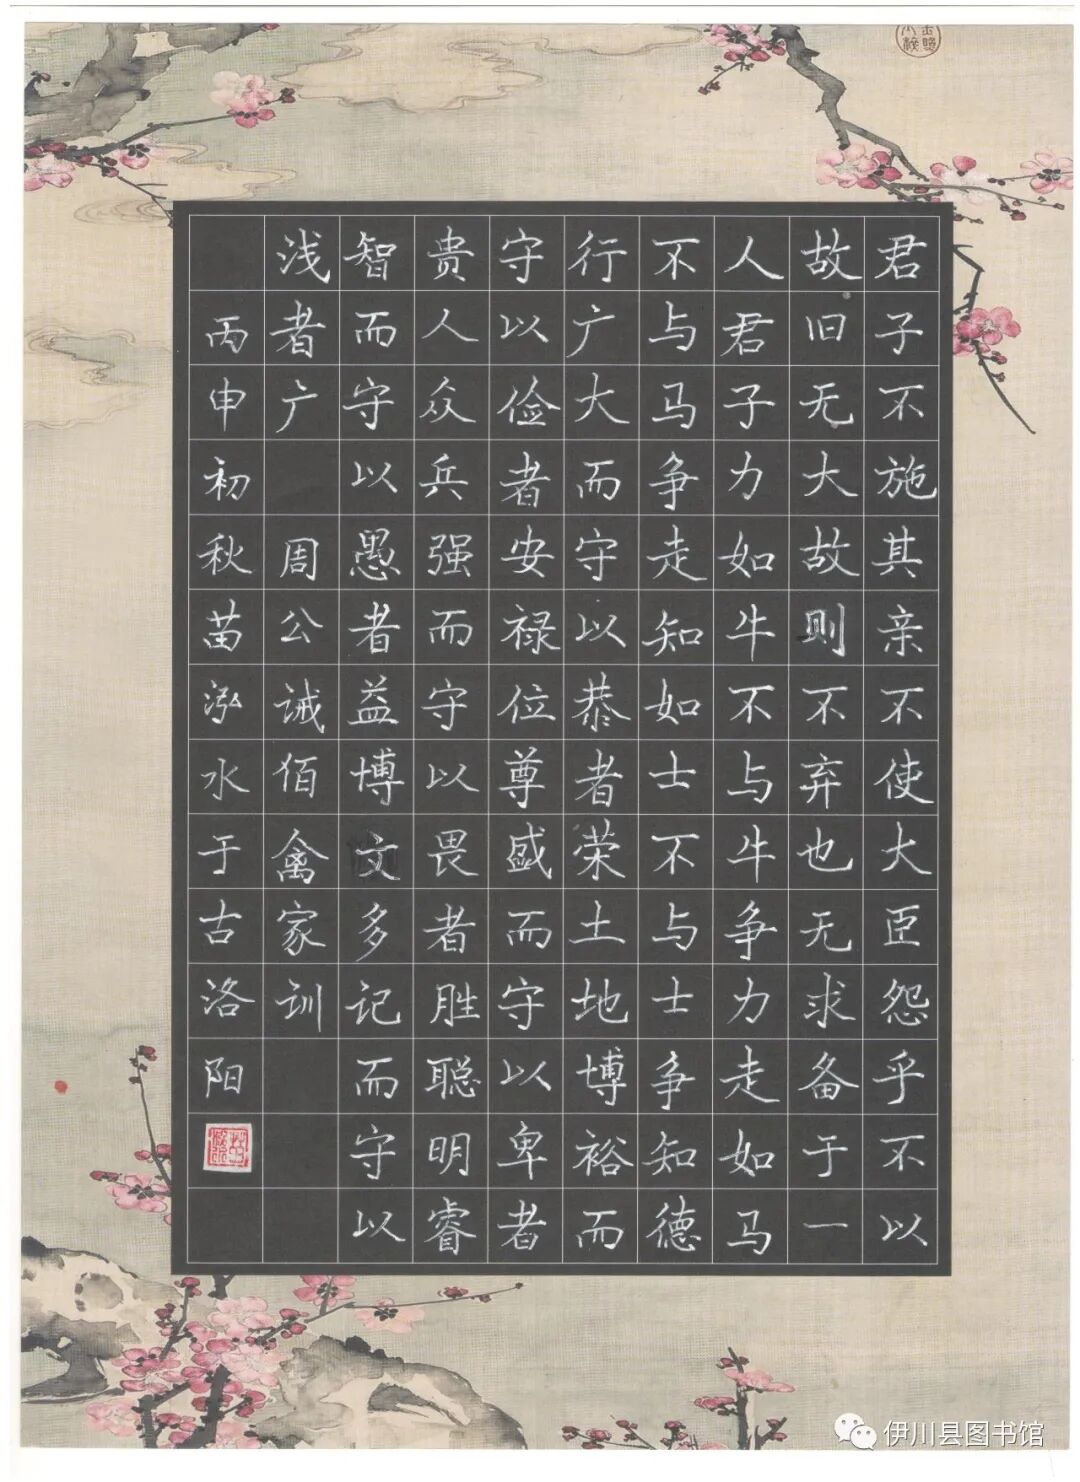 君子不施其亲不使大臣怨乎不以
故旧无大故则不弃也无求备于一
人君子力如牛不与牛争力走如马
不与马争走知如士不与士争知德
行广大而守以恭者荣土地博裕而
守以俭者安禄位尊盛而守以卑者
贵人众兵强而守以畏者胜聪明睿
智而守以愚者益博文多记而守以
浅者广 周公诫佰禽家训
丙申初秋苗泓水于古洛阳
伊川县图书馆